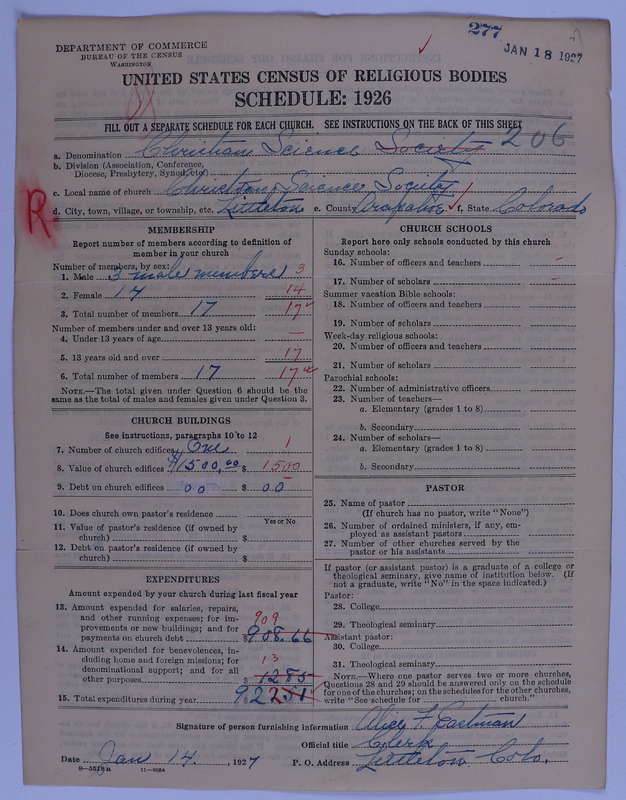 277
JAN 18 1927
DEPARTMENT OF COMMERCE
BUREAU OF THE CENSUS
WASHINGTON
UNITED STATES CENSUS OF RELIGIOUS BODIES
SCHEDULE: 1926
FILL OUT A SEPARATE SCHEDULE FOR EACH CHURCH. SEE INSTRUCTIONS ON THE BACK OF THIS SHEET
206
a. Denomination Christian Science Society
b. Division (Association, Conference, Diocese, Presbytery, Synod, etc.)
c. Local name of church Christian Science Society
d. City, town, village, or township, etc. Littleton e. County Arapahoe f. State Colorado
R
MEMBERSHIP
Report number of members according to definition of
member in your church
Number of members, by sex:
1. Male 3 male members 3
2. Female 14 14
3. Total number of members 17 17
Number of members under and over 13 years old:
4. Under 13 years of age —
5. 13 years old and over 17
6. Total number of members 17 17
NOTE.—The total given under Question 6 should be the
same as the total of males and females given under Question 3.
CHURCH BUILDINGS
See instructions, paragraphs 10 to 12
7. Number of church edifices One 1
8. Value of church edifices $1500.00 $ 1500
9. Debt on church edifices 00 $ 00
10. Does church own pastor's residence
Yes or No
11. Value of pastor's residence (if owned by
church) $
12. Debt on pastor's residence (if owned by
church) $
EXPENDITURES
Amount expended by your church during last fiscal year
13. Amount expended for salaries, repairs,
and other running expenses; for im-
provements or new buildings; and for 909
payments on church debt $ 908.66
14. Amount expended for benevolences, in-
cluding home and foreign missions; for
denominational support; and for all 13
other purposes $ 1285
15. Total expenditures during year $ 922
CHURCH SCHOOLS
Report here only schools conducted by this church
Sunday schools:
16. Number of officers and teachers –
17. Number of scholars –
Summer vacation Bible schools:
18. Number of officers and teachers
19. Number of scholars
Week-day religious schools:
20. Number of officers and teachers
21. Number of scholars
Parochial schools:
22. Number of administrative officers
23. Number of teachers—
a. Elementary (grades 1 to 8)
b. Secondary
24. Number of scholars—
a. Elementary (grades 1 to 8)
b. Secondary
PASTOR
25. Name of pastor
(If church has no pastor, write "None")
26. Number of ordained ministers, if any, em-
ployed as assistant pastors
27. Number of other churches served by the
pastor or his assistants
If pastor (or assistant pastor) is a graduate of a college or
theological seminary, give name of institution below. (If
not a graduate, write "No" in the space indicated.)
Pastor:
28. College
29. Theological seminary
Assistant pastor:
30. College
31. Theological seminary
NOTE.—Where one pastor serves two or more churches,
Questions 28 and 29 should be answered only on the schedule
for one of the churches; on the schedules for the other churches,
write "See schedule for church."
Signature of person furnishing information Alice F. Eastman
Official title Clerk
Date Jan 14, 1927 P. O. Address Littleton Colo.
11—9084